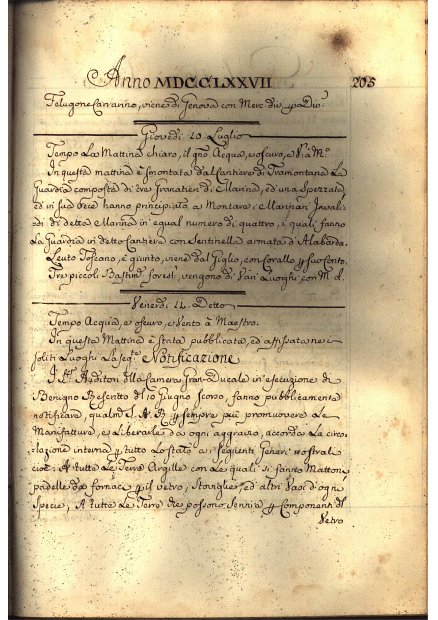 Anno MDCCLXXVII 205
Felugone Carrarino, viene di Genova con Merc. div. p Div.
Giovedì 10. Luglio
Tempo La Mattina chiaro, il gno Acqua, e oscuro, e V. a M.
In questa mattina è smontata dal Cantiere di Tramontana La
Guardia composta di tre Granatieri di Marina, ed una Sperzata
ed in sud vece hanno principiato a Montare i Marinari Invali-
di di detta Marina in egual numero di quattro, i quali fanno
La Guardia in detto Cantiere con Sentinella armata d'Alabarda.
Leuto Toscano, è giunto, viene dal Giglio, con Corallo p suo Conto.
Tre piccoli Bastim. forest. vengono di Vari Luoghi con M. d.
Venerdì 11. Detto
Tempo Acqua, e oscuro, e Vento a Maestro.
In questa Mattina è stata pubblicata, ed affissata ne
soliti Luoghi La seg. Notificazione
Auditori della Camera Gran-Ducale in esecuzione di
Benigno Rescritto del 10 Giugno scorso, fanno pubblicamente
notificare, qualm. S. A. R. p sempre più promuovere Le
Manifatture, e Liberarle da ogni aggravio, accorda La circo-
lazione interna p tutto Lo Stato a i seguenti Generi nostrali
cioè: A tutte Le Terre Argille con Le quali si fanno Mattoni,
padelle da fornaci p il vetro, Stoviglie, ed altri Vasi d'ogni
Specie; A tutte Le Terre che possono servire p Componenti del
Vetro